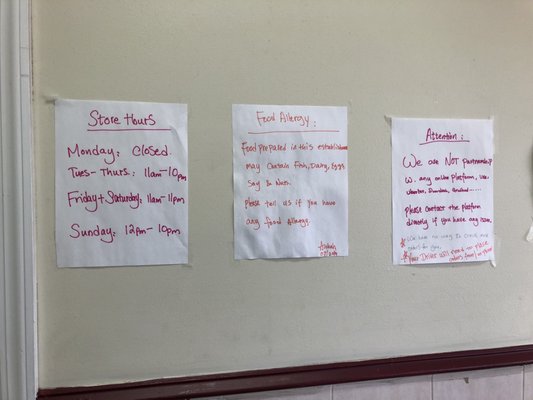 Store Hours
Monday: Closed.
Tues - Thurs: 11am-10pm
Friday + Saturday: 11am-11pm
Sunday: 12pm-10pm
Food Allergy:
Food prepared in this establishment
may Contain Fish, Dairy, Eggs
Soy Or Nuts.
Please tell us if you have
any food Allergy.
Attention:
We are NOT partnership
w. any online platform,
Please contact the platform
directly if you have any issue.
We have no way to check
Your Driver will need to